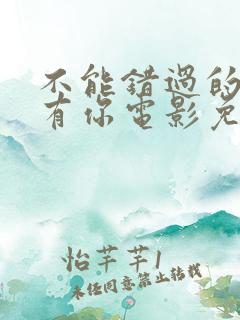 不能错过的
有你电影免
怡芊芊1
未经同意禁止转载